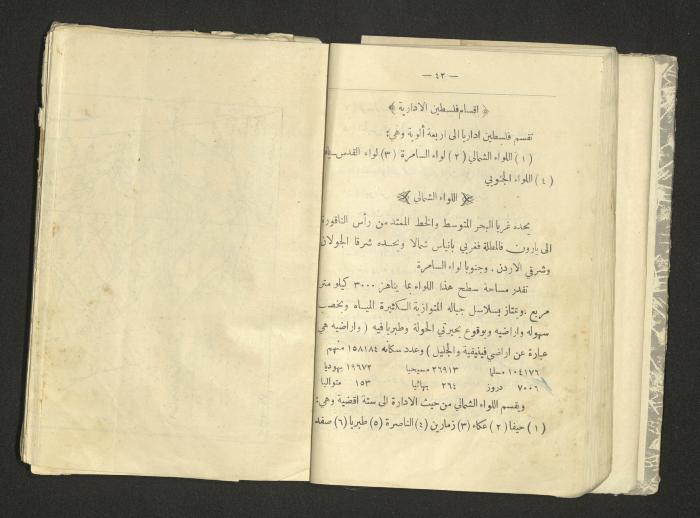 — ٤٢ —
﴿ اقسام فلسطين الادارية ﴾
تقسم فلسطين اداريا الى اربعة ألوية وهي:
( ١ ) اللواء الشمالي ( ٢ ) لواء السامرة ( ٣ ) لواء القدس
( ٤ ) اللواء الجنوبي
﴿ اللواء الشمالي ﴾
يحده غربا البحر المتوسط والخط الممتد من رأس الناقورة
الى يارون فالمطلة فغربي بانياس شمالا ويحده شرقا الجولان
وشرقي الاردن . وجنوبا لواء السامرة
تقدر مساحة سطح هذا اللواء بما يناهز ٣٠٠٠ كيلو متر
مربع . ويمتاز بسلاسل جباله المتوازية الكثيرة المياه وبخصب
سهوله واراضيه وبوقوع بحيرتي الحولة وطبريا فيه ( واراضيه هي
عبارة عن اراضي فينيقية والجليل ) وعدد سكانه ١٥٨١٨٤ منهم
١٠٤١٧٦ مسلما ٢٦٩١٣ مسيحيا ١٩٦٧٢ يهوديا
٧٠٠٦ دروز ٢٦٤ بهائيا ١٥٣ متواليا
ويقسم اللواء الشمالي من حيث الادارة الى ستة اقضية وهي:
( ١ ) حيفا ( ٢ ) عكاء (٣) زمارين (٤) الناصرة (٥) طبريا (٦) صفد